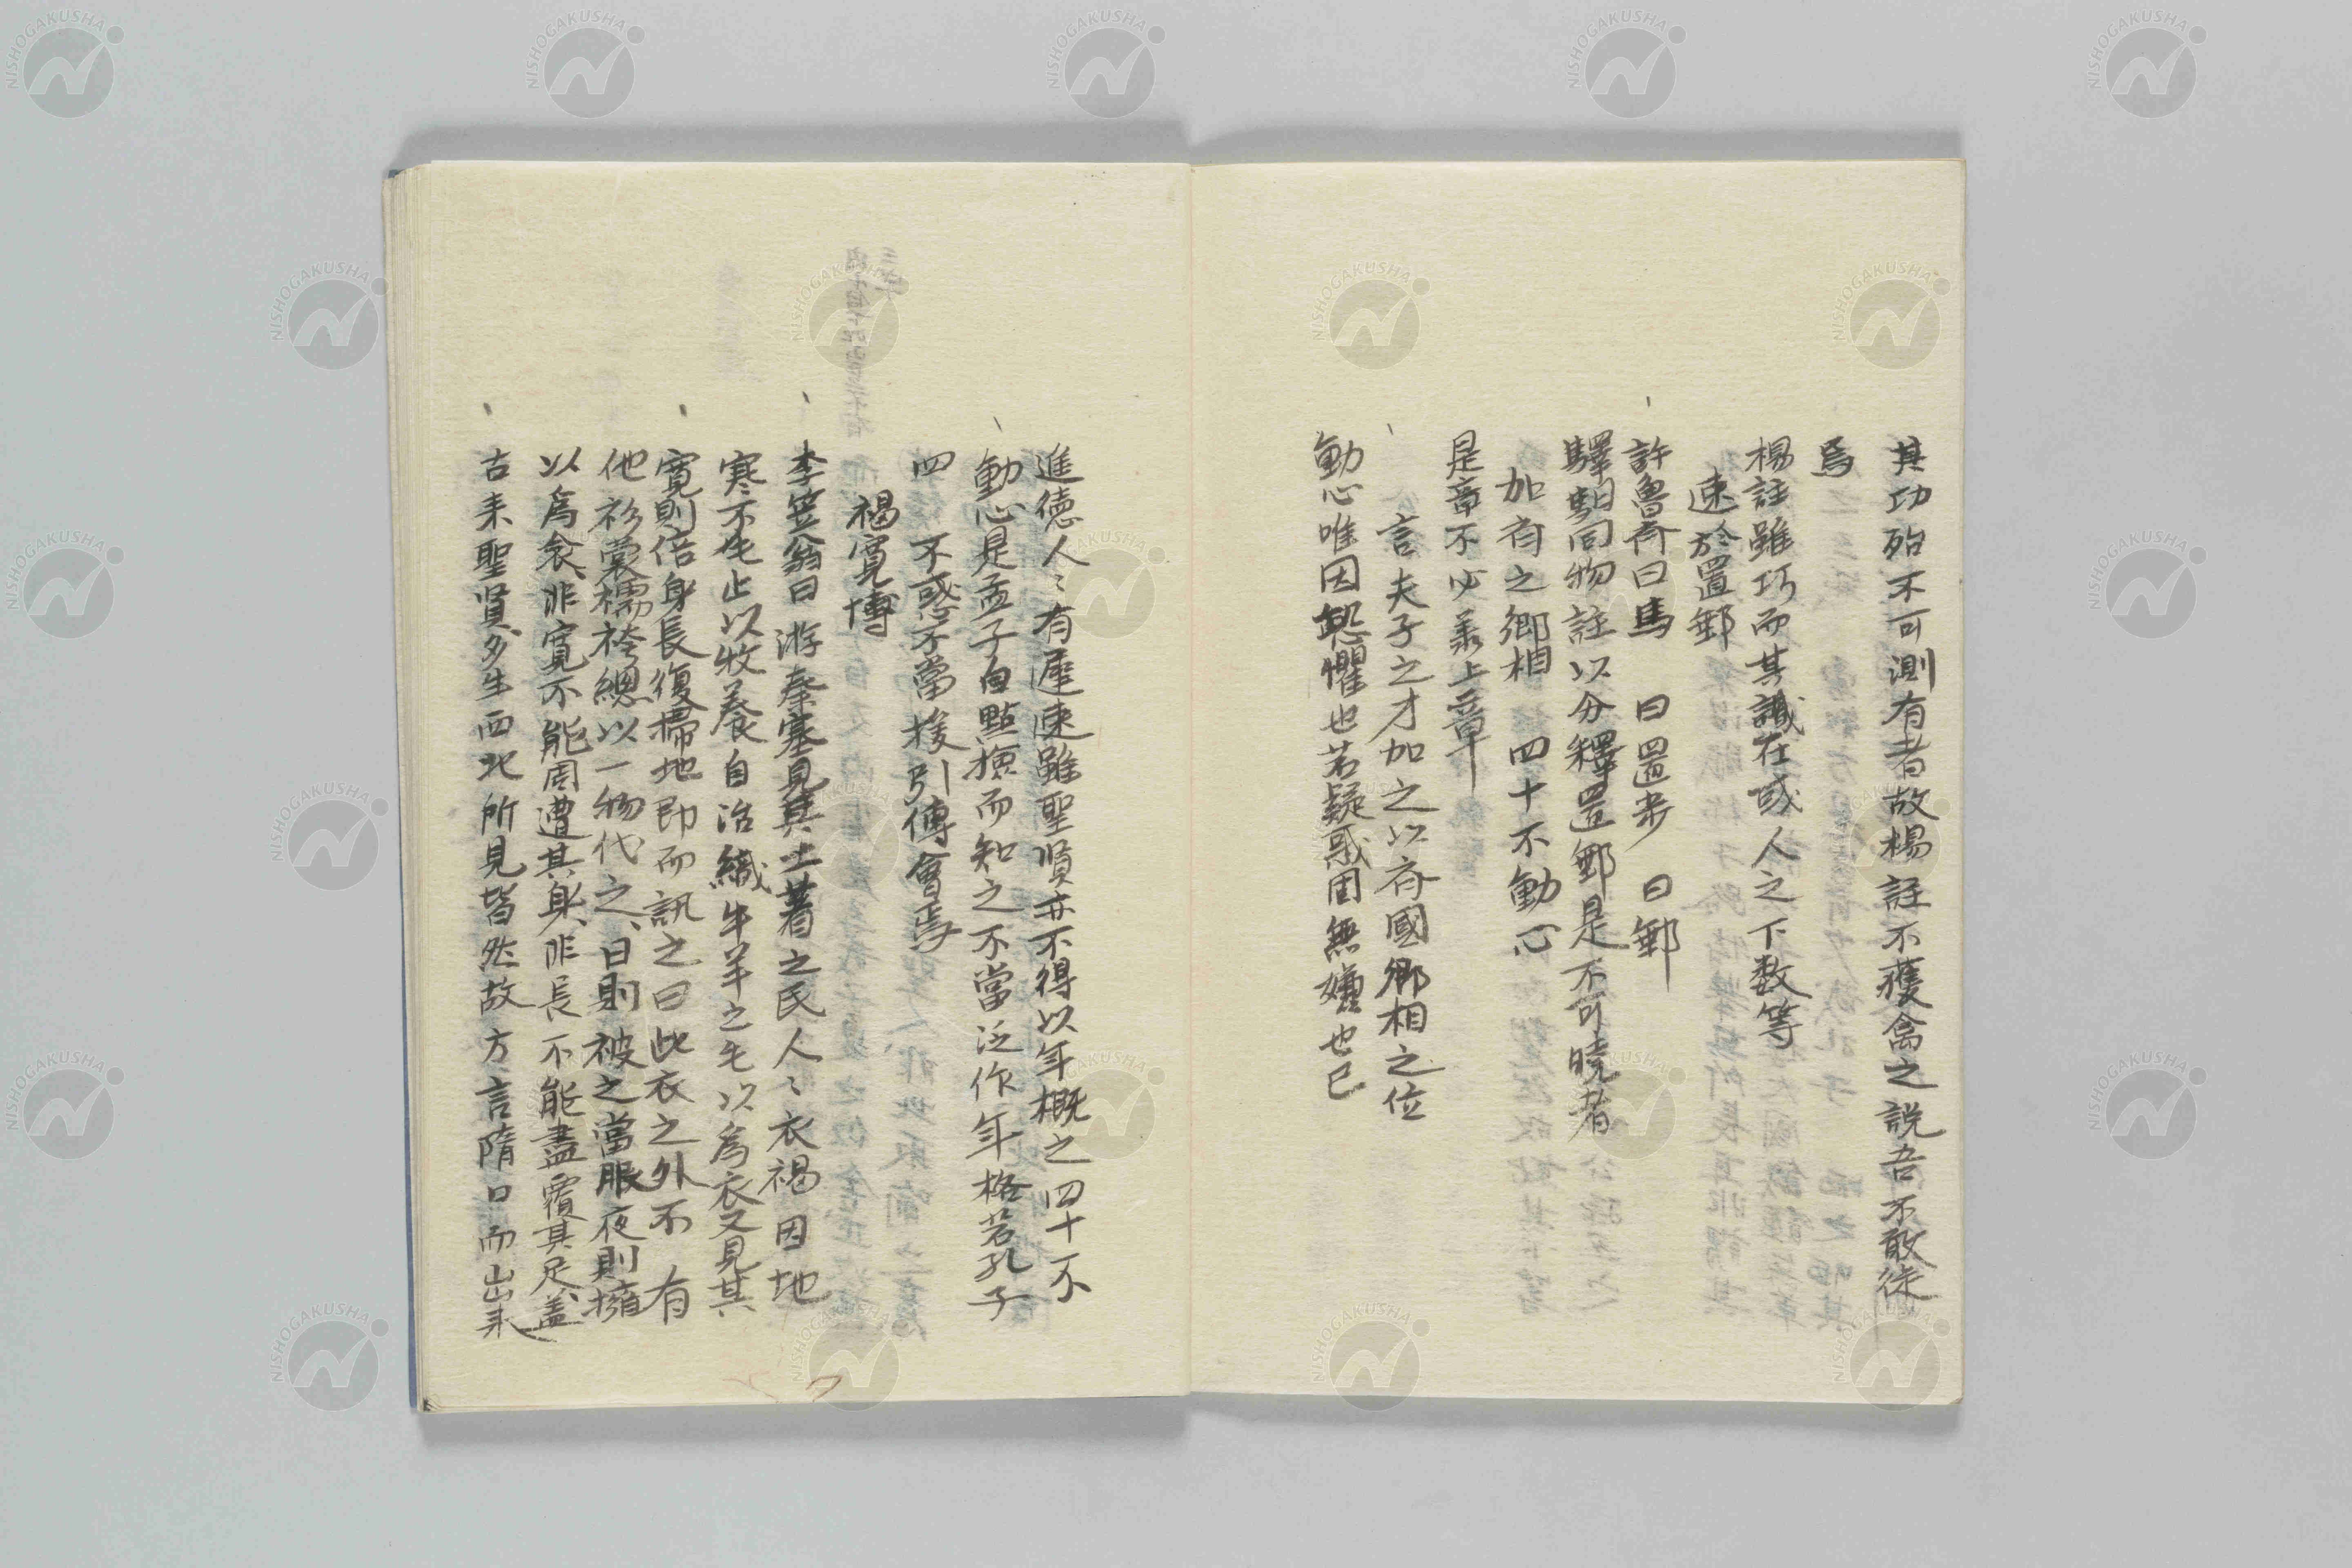 其功殆不可測有者故楊註不獲禽之說吾不敢從
焉
楊註雖巧而其識在或人之下数等
速於置郵
許魯斎曰馬 曰置步 曰郵
驛馹同物註以分釋置郵是不可曉者
加斉之卿相 四十不動心
是章不必承上章
言夫子之才加之以斉國卿相之位
動心唯因恐懼也若疑惑固無嫌也已
進徳人〻有遅速雖聖賢亦不得以年概之四十不
動心是孟子自點撿而知之不當泛作年格若孔子
四 不惑不當援引傅會焉
褐寬博
李笠翁曰游秦塞見其土著之民人〻衣褐因地
寒不毛止以牧養自治織牛羊之毛以爲衣又見其
寬則倍身長復掃地即而訊之曰此衣之外不 有
他衫裳襦袴總以一物代之、日則被之當服夜則擁
以爲衾、非寬不能周遭其身、非長不能盡覆其足、蓋
古来聖賢多生西北所見皆然故方言隋口而出来
NISHOGAKUSHA